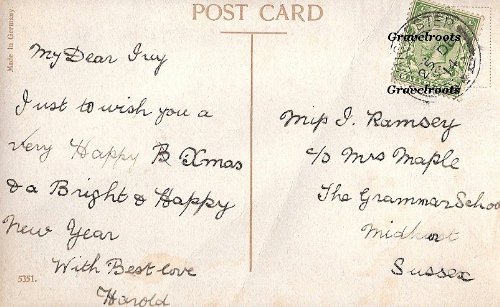 POST CARD
Made in Germany
My Dear Ivy
Just to wish you a
very Happy B Xmas
& a Bright & Happy
New Year
With Best love
Harold
5351.
Gravelroots
Gravelroots
Miss I. Ramsey
c/o Mrs Maple
The Grammar Schoo
Midhurst
Sussex